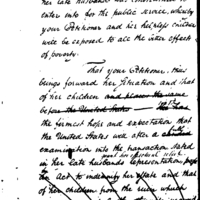 her late husband was
enter into for the public service, whereby
your Petitioner and her helpless children
will be exposed to all the bitter effects
of poverty.
That your Petitioner thus
brings forward her situation and that
of her children and places the same
before the United States
the firmest hope and expectation that
the United States will after a
examination into the transaction stated
grant her effectual relief
in her late husbands representation
act to indemnify her estate and that
of her children from the ruin which